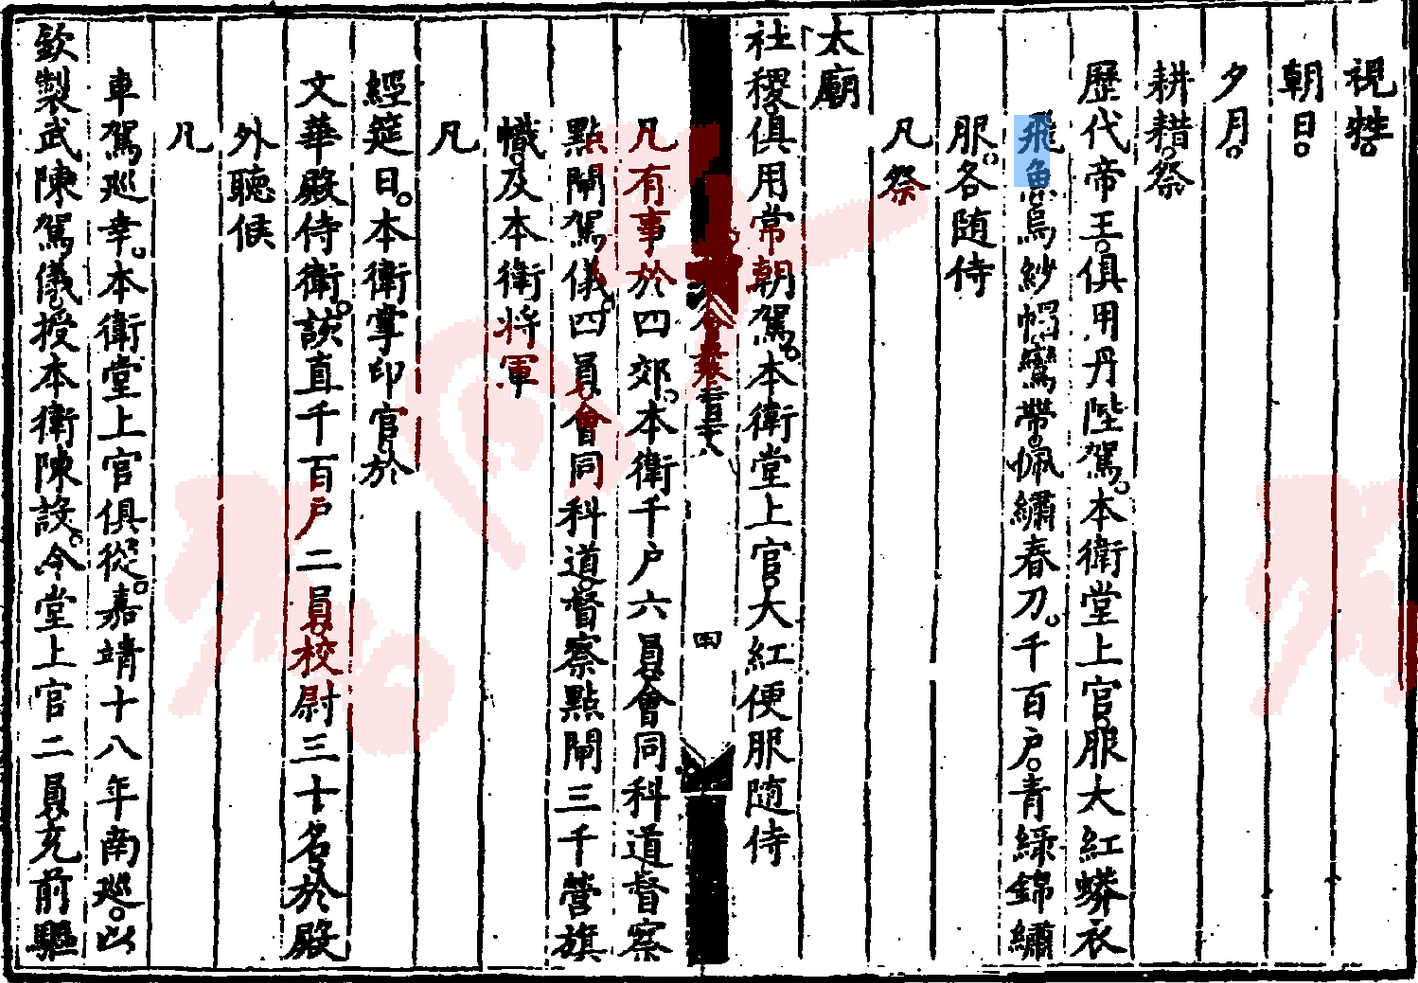 視牲。
朝日。
夕月。
耕耤。祭
歷代帝王。俱用丹陛駕。本衛堂上官。服大紅蟒衣
飛魚。烏紗帽。鸞帶。佩繡春刀。千百戶。青綠錦繡
服。各随侍
凡祭
太廟
社稷。俱用常朝駕。本衛堂上官。大紅便服随侍
會典卷
凡有事於四郊。本衛千户六員。會同科道督察
點閘駕儀。四員。會同科道。督察點閘三千營旗
幟。及本衛將軍
凡
經筵日。本衛掌印官。於
文華殿侍衛。該直千百戶二員。校尉三十名。於殿
外聽候
凡
車駕巡幸。本衛堂上官俱從。嘉靖十八年南巡。以
欽製武陳駕儀。授本衛陳設。令堂上官二員。充前驅